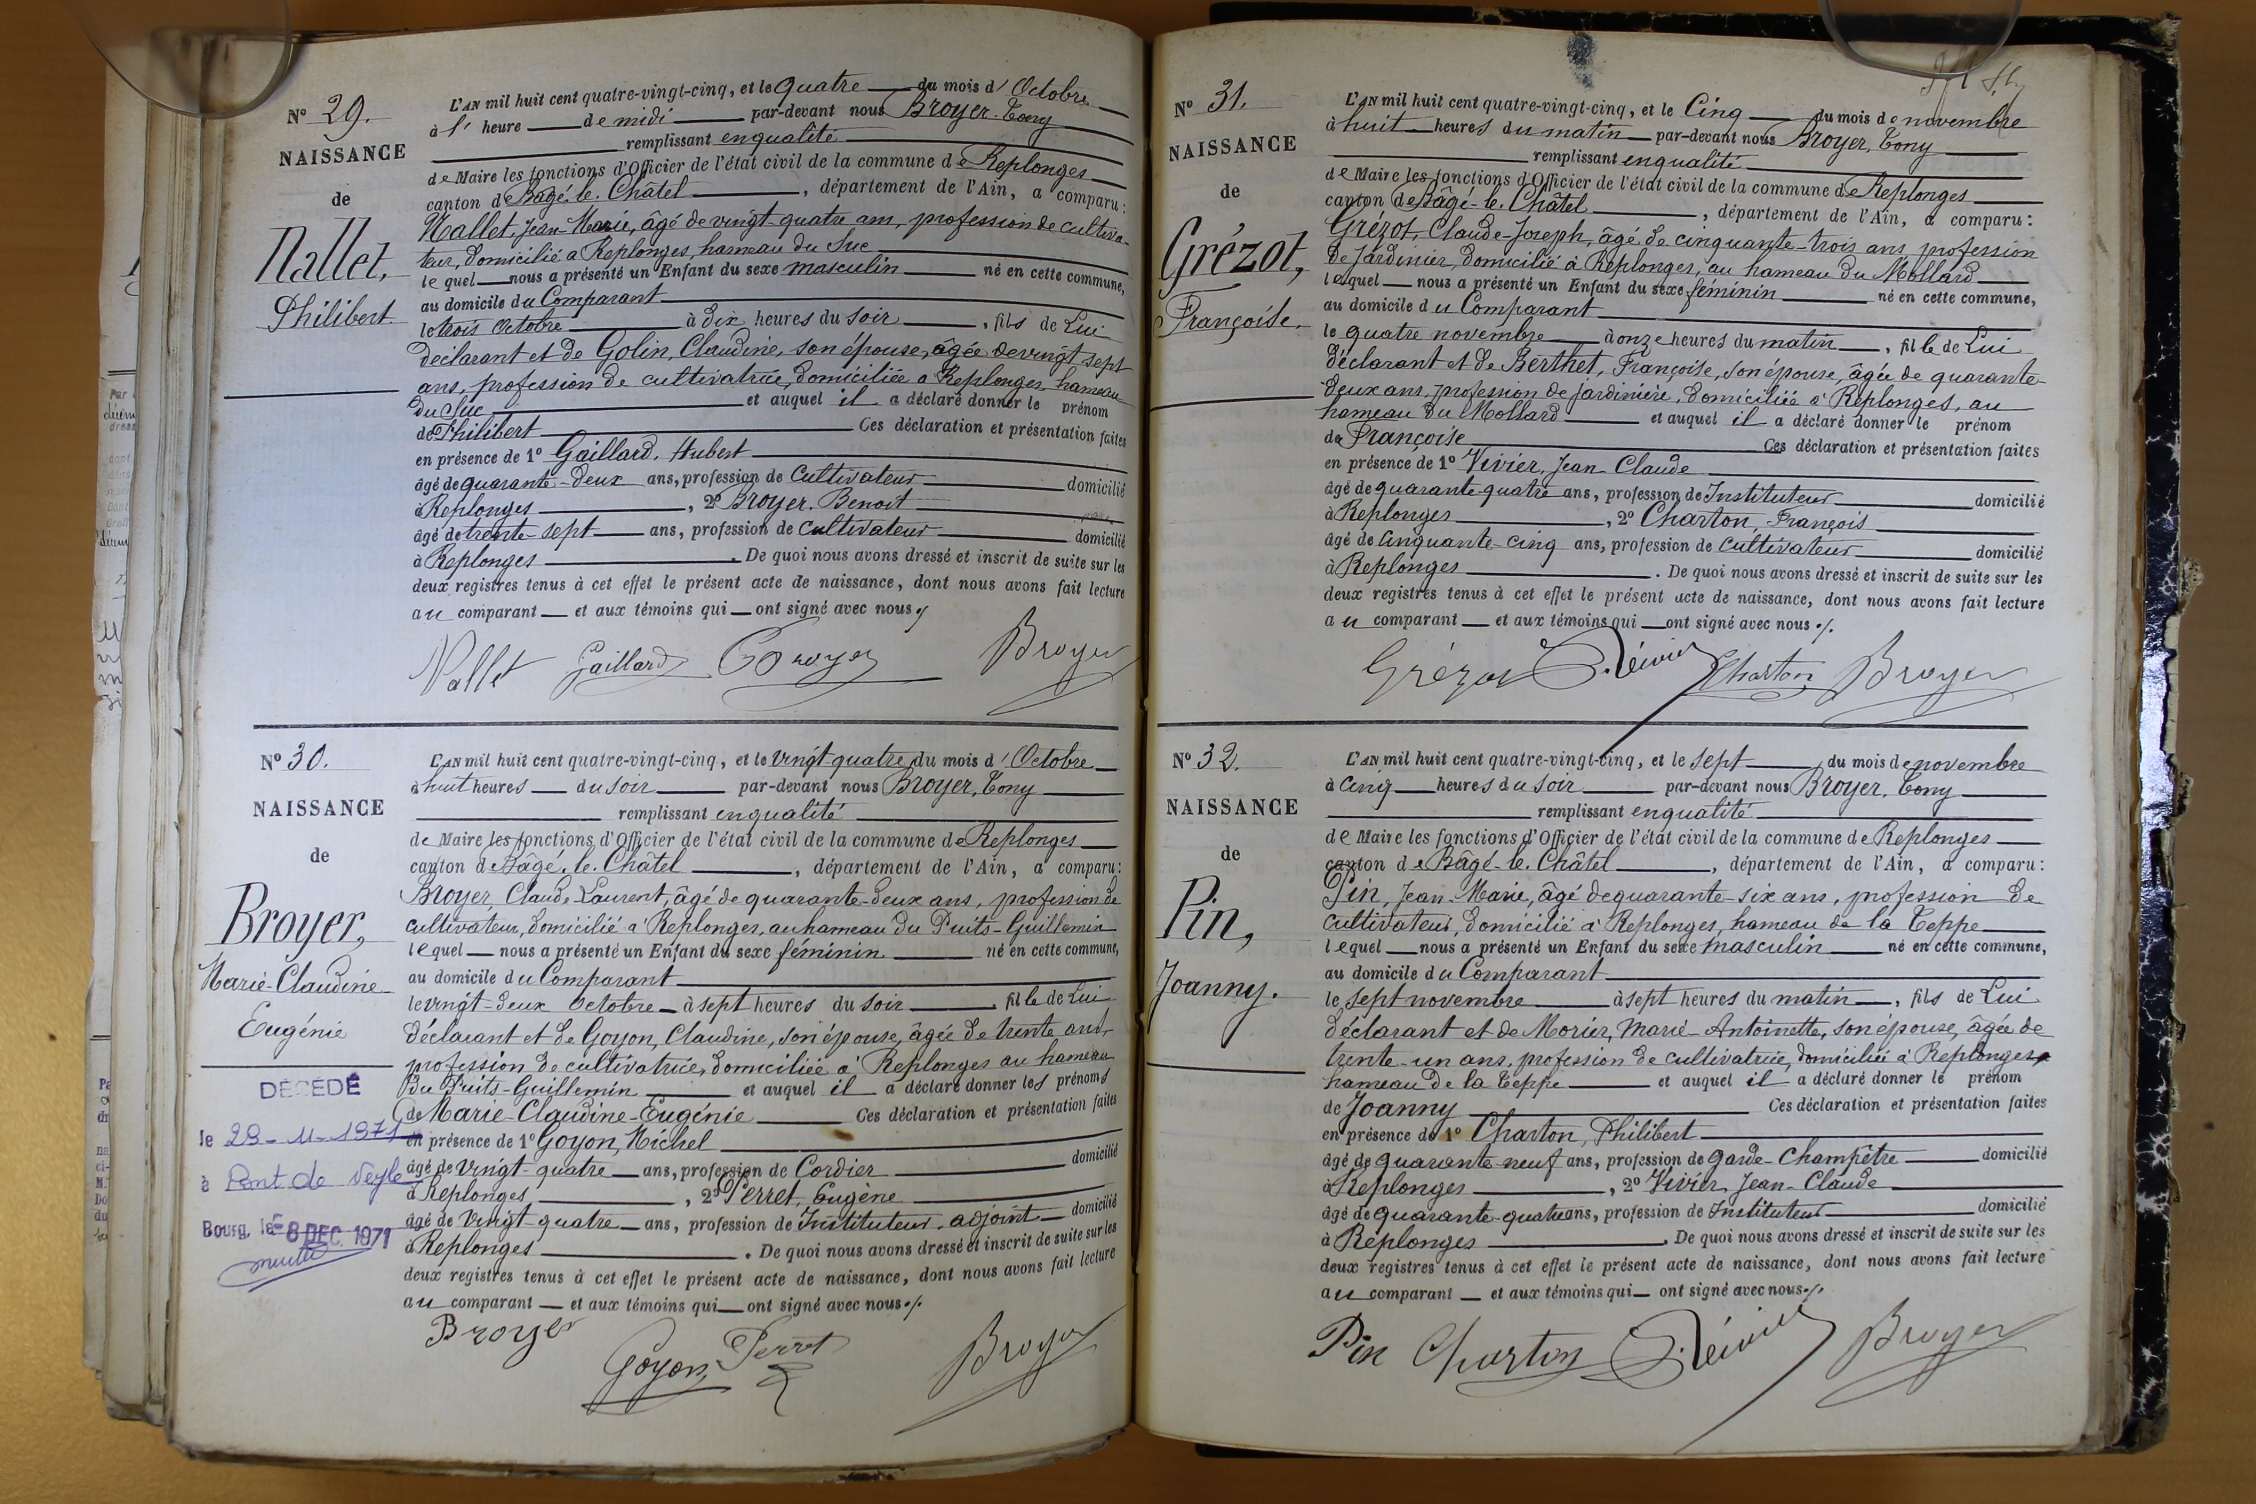 N° 29.
NAISSANCE
de
Nallet,
Philibert.
L'AN mil huit cent quatre-vingt-cinq, et le quatre du mois d'Octobre
à l' heure de midi par-devant nous Broyer. Tony
remplissant en qualité
de Maire les fonctions d'Officier de l'état civil de la commune de Replonges
canton de Bâgé-le-Châtel, département de l'Ain, a comparu:
Nallet, Jean-Marie, âgé de vingt-quatre ans, profession de cultiva-
teur, domicilié à Replonges, hameau du Suc
lequel nous a présenté un Enfant du sexe masculin né en cette commune,
au domicile du Comparant
le trois Octobre à dix heures du soir, fils de Lui
déclarant et de Golin, Claudine, son épouse, âgée de vingt sept
ans, profession de cultivatrice, domiciliée a Replonges hameau
du Suc et auquel il a déclaré donner le prénom
de Philibert Ces déclaration et présentation faites
en présence de 1° Gaillard, Hubert
âgé de quarante-deux ans, profession de Cultivateur domicilié
à Replonges, 2° Broyer. Benoit
âgé de trente-sept ans, profession de Cultivateur domicilié
à Replonges. De quoi nous avons dressé et inscrit de suite sur les
deux registres tenus à cet effet le présent acte de naissance, dont nous avons fait lecture
au comparant et aux témoins qui ont signé avec nous
Nallet Gaillard Broyer Broyer
N° 30.
NAISSANCE
de
Broyer,
Marie-Claudine
Eugénie
DÉCÉDÉ
le 29-11-1971
à Pont de Veyle
Bourg, le 8 DEC. 1971
L'AN mil huit cent quatre-vingt-cinq, et le vingt-quatre du mois d'Octobre
à huit heures du soir par-devant nous Broyer, Tony
remplissant en qualité
de Maire les fonctions d'Officier de l'état civil de la commune de Replonges
canton de Bâgé-le-Châtel, département de l'Ain, a comparu:
Broyer, Claude Laurent, âgé de quarante-deux ans, profession de
cultivateur, domicilié à Replonges, au hameau du Puits-Guillemin
lequel nous a présenté un Enfant du sexe féminin né en cette commune,
au domicile du Comparant
le vingt-deux Octobre à sept heures du soir, fille de Lui
déclarant et de Goyon, Claudine, son épouse, âgée de trente ans,
profession de cultivatrice, domiciliée à Replonges au hameau
du Puits-Guillemin et auquel il a déclaré donner les prénoms
de Marie-Claudine-Eugénie Ces déclaration et présentation faites
en présence de 1° Goyon, Michel
âgé de vingt-quatre ans, profession de Cordier domicilié
à Replonges, 2° Perret, Eugène
âgé de vingt-quatre ans, profession de Instituteur-adjoint domicilié
à Replonges. De quoi nous avons dressé et inscrit de suite sur les
deux registres tenus à cet effet le présent acte de naissance, dont nous avons fait lecture
au comparant et aux témoins qui ont signé avec nous
Broyer Goyon Perret Broyer
N° 31.
NAISSANCE
de
Grézot,
Françoise.
L'AN mil huit cent quatre-vingt-cinq, et le Cinq du mois de novembre
à huit heures du matin par-devant nous Broyer, Tony
remplissant en qualité
de Maire les fonctions d'Officier de l'état civil de la commune de Replonges
canton de Bâgé-le-Châtel, département de l'Ain, a comparu:
Grézot, Claude-Joseph, âgé de cinquante-trois ans, profession
de Jardinier, domicilié à Replonges, au hameau du Mollard
lequel nous a présenté un Enfant du sexe féminin né en cette commune,
au domicile du Comparant
le quatre novembre à onze heures du matin, fille de Lui
déclarant et de Berthet, Françoise, son épouse, âgée de quarante-
deux ans, profession de jardinière, domiciliée à Replonges, au
hameau du Mollard et auquel il a déclaré donner le prénom
de Françoise Ces déclaration et présentation faites
en présence de 1° Vivier, Jean Claude
âgé de quarante-quatre ans, profession de Instituteur domicilié
à Replonges, 2° Charton, François
âgé de Cinquante-cinq ans, profession de Cultivateur domicilié
à Replonges. De quoi nous avons dressé et inscrit de suite sur les
deux registres tenus à cet effet le présent acte de naissance, dont nous avons fait lecture
au comparant et aux témoins qui ont signé avec nous
Grézot Vivier Charton Broyer
N° 32.
NAISSANCE
de
Pin,
Joanny.
L'AN mil huit cent quatre-vingt-cinq, et le sept du mois de novembre
à Cinq heures du soir par-devant nous Broyer, Tony
remplissant en qualité
de Maire les fonctions d'Officier de l'état civil de la commune de Replonges
canton de Bâgé-le-Châtel, département de l'Ain, a comparu:
Pin, Jean-Marie, âgé de quarante-six ans, profession de
Cultivateur, domicilié à Replonges, hameau de la Teppe
lequel nous a présenté un Enfant du sexe masculin né en cette commune,
au domicile du Comparant
le sept novembre à sept heures du matin, fils de Lui
déclarant et de Morier, Marie-Antoinette, son épouse, âgée de
trente-un ans, profession de cultivatrice, domiciliée à Replonges,
hameau de la Teppe et auquel il a déclaré donner le prénom
de Joanny Ces déclaration et présentation faites
en présence de 1° Charton, Philibert
âgé de quarante-neuf ans, profession de Garde-Champêtre domicilié
à Replonges, 2° Vivier, Jean-Claude
âgé de quarante-quatre ans, profession de Instituteur domicilié
à Replonges. De quoi nous avons dressé et inscrit de suite sur les
deux registres tenus à cet effet le présent acte de naissance, dont nous avons fait lecture
au comparant et aux témoins qui ont signé avec nous
Pin Charton Vivier Broyer